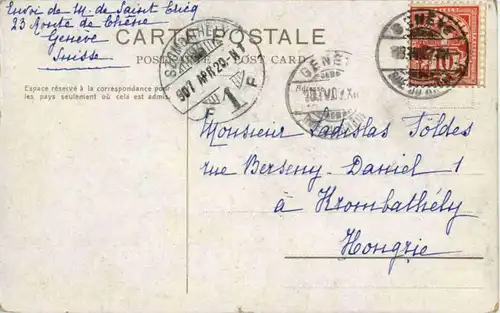 Envoi de M. de Saint Ericq
23 Route de Chêne
Genève
Suisse
CARTE POSTALE
POST CARD
Espace réservé à la correspondance pour
les pays seulement où cela est admis
Adresse
SZOMBATHELY
907 APR 20 N 7
F 1 F
GENÈVE
GENÈVE
10
Monsieur Ladislas Földes
rue Berseny-Daniel 1
à Krombathély
Hongrie